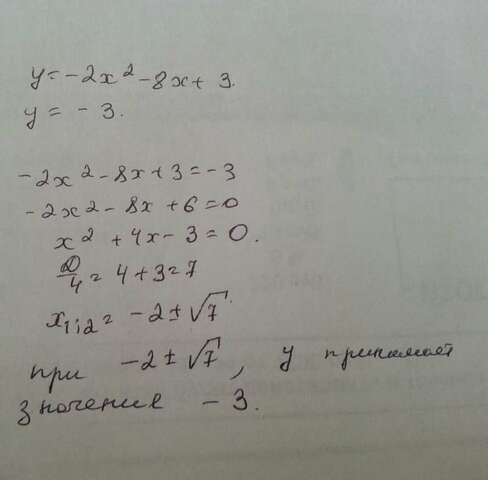 y = -2x² - 8x + 3.
y = - 3.
-2x² - 8x + 3 = -3
-2x² - 8x + 6 = 0
x² + 4x - 3 = 0.
D/4 = 4 + 3 = 7
x₁;₂ = -2 ± √7
при -2 ± √7, y принимает
значение - 3.